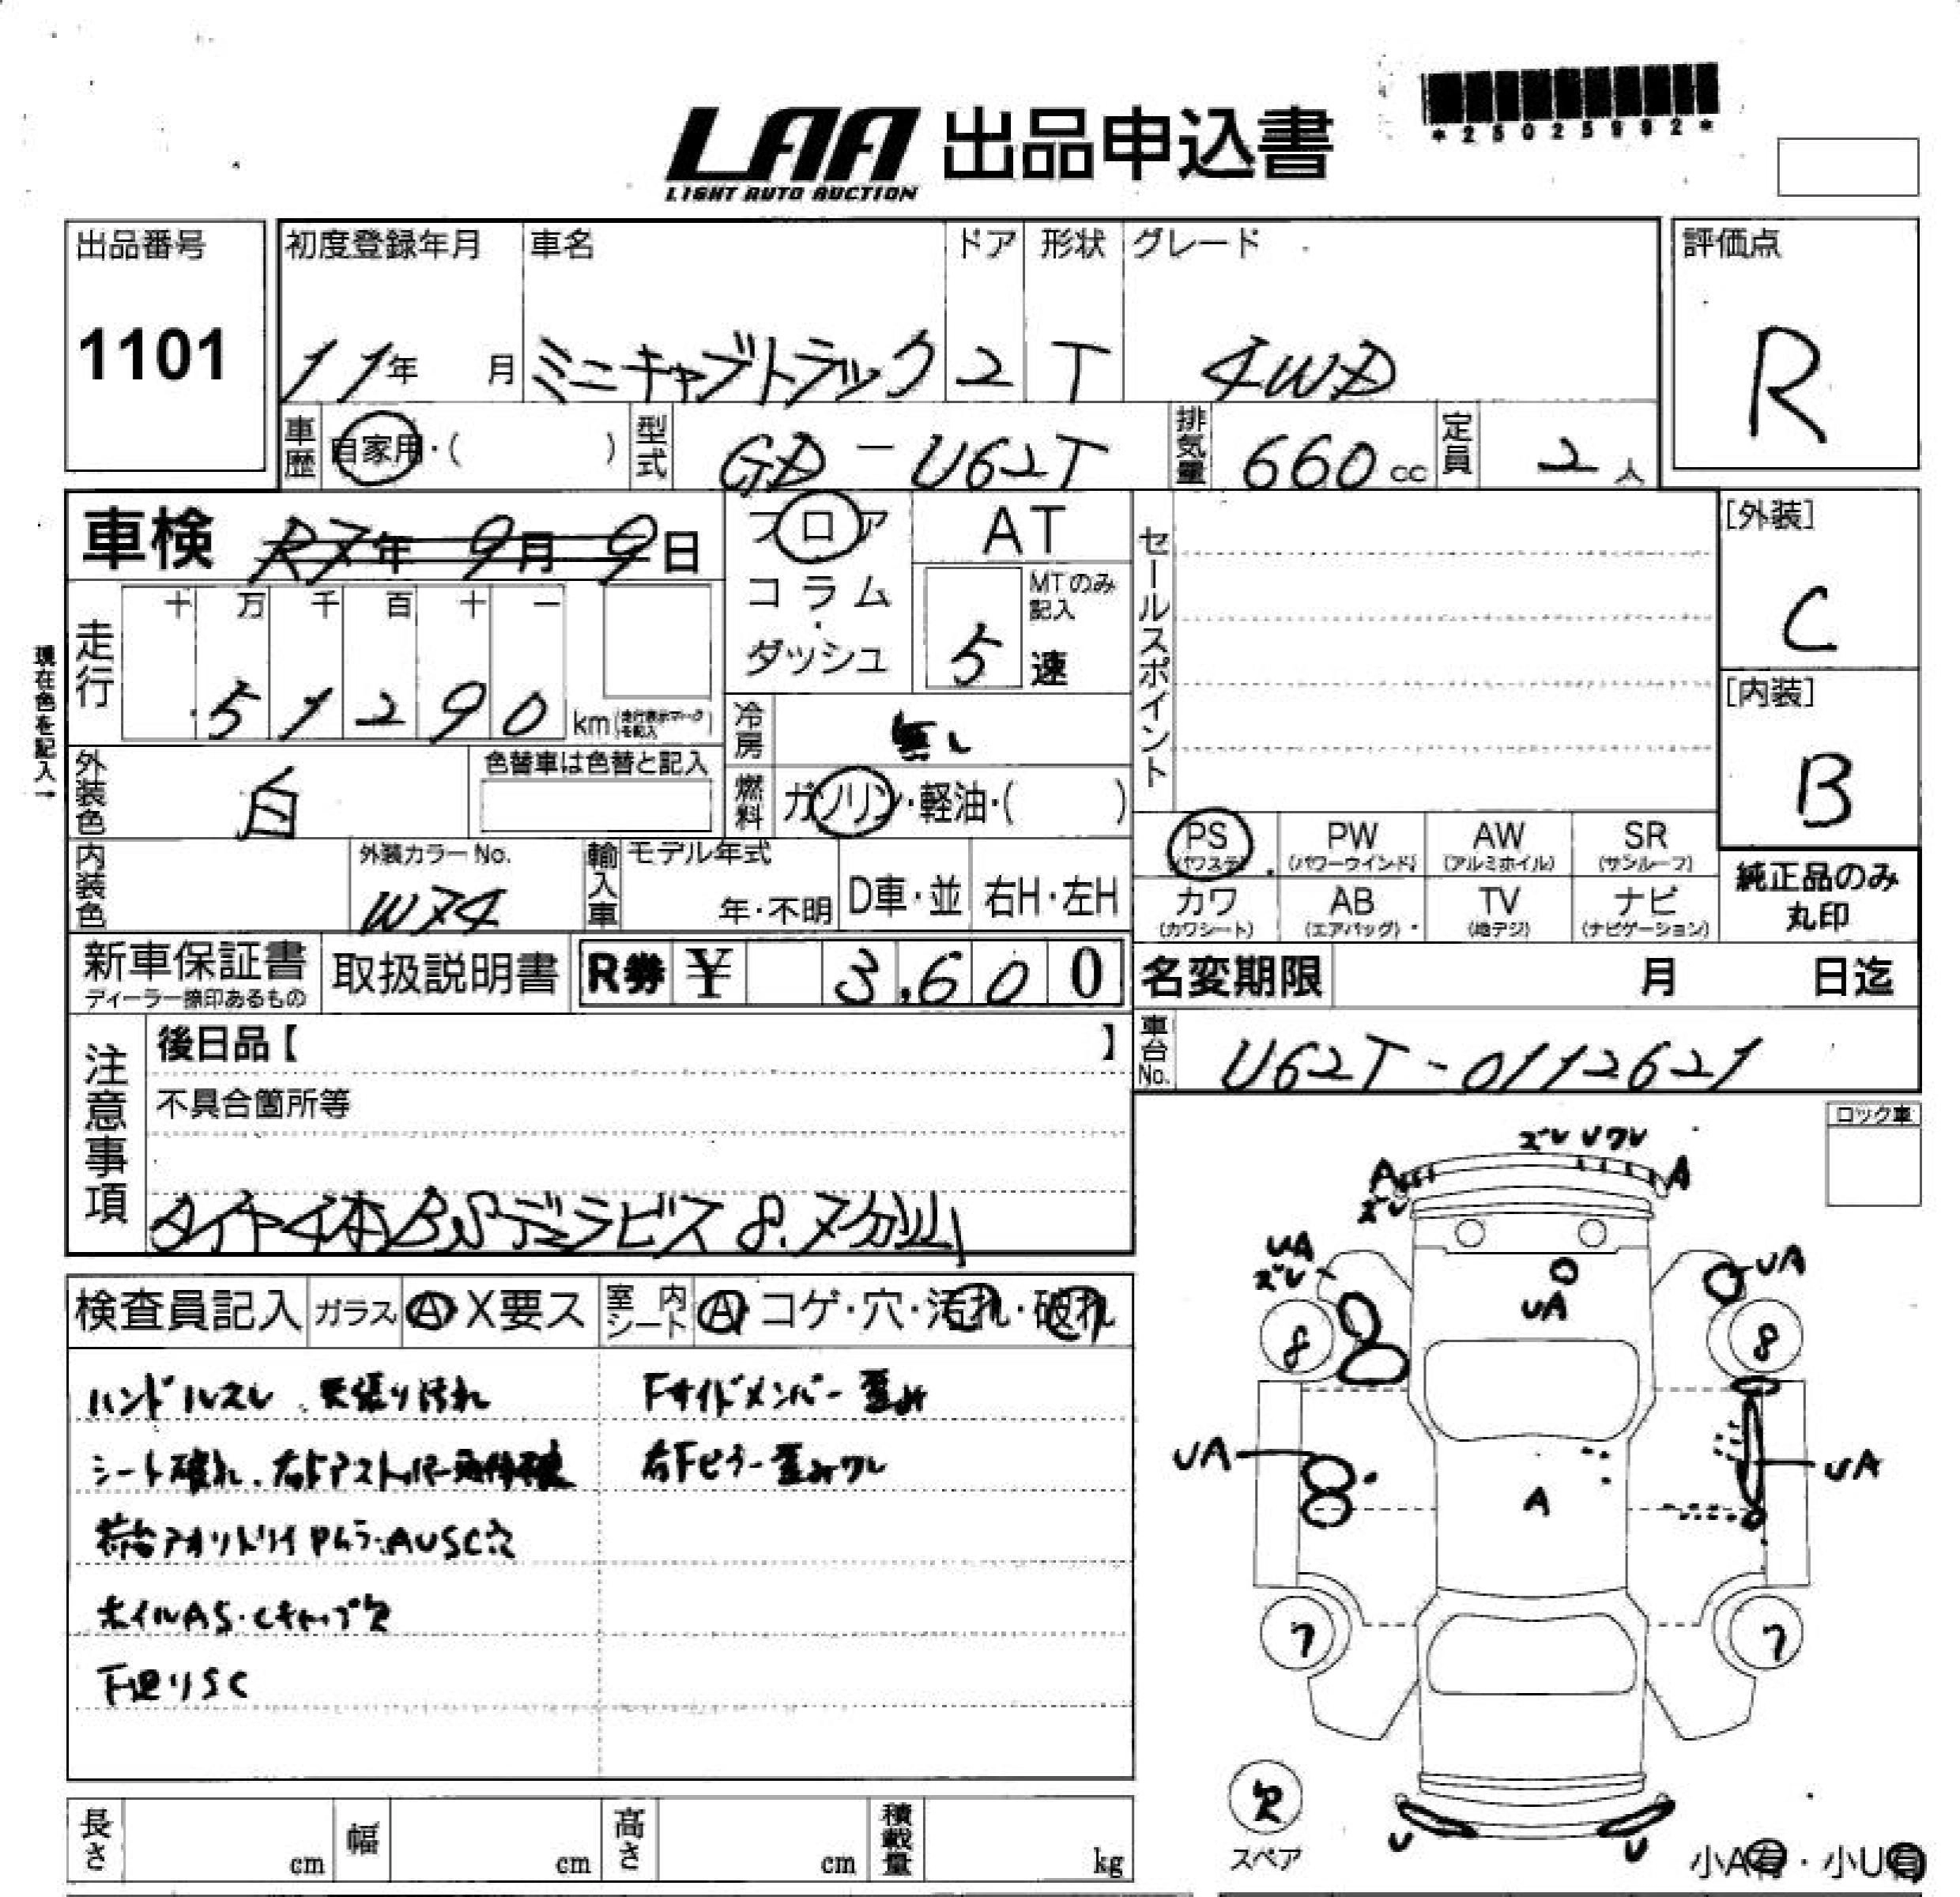 LAA 出品申込書
LIGHT AUTO AUCTION
*25025992*
出品番号 初度登録年月 車名 ドア 形状 グレード 評価点
1101 11年 月 ミニキャブトラック 2 T 4WD R
車歴 自家用・( ) 型式 GD-U62T 排気量 660cc 定員 2人
車検 R7年 9月 9日 フロア AT セールスポイント [外装]
コラム・ダッシュ 5速 MTのみ記入 C
現在色を記入→
走行 十 万 千 百 十 一
51290 km (走行表示マークを記入) [内装]
冷房 無し B
外装色 白 色替車は色替と記入 燃料 ガソリン・軽油・( )
PS (パワステ) PW (パワーウインド) AW (アルミホイル) SR (サンルーフ)
内装色 外装カラーNo. W74 輸入車 モデル年式 年・不明 D車・並 右H・左H
カワ (カワシート) AB (エアバッグ) TV (地デジ) ナビ (ナビゲーション) 純正品のみ丸印
新車保証書 取扱説明書 R券 ¥ 3,600 名変期限 月 日迄
ディーラー捺印あるもの
車台No. U62T-0112621
注意事項 後日品【 】
不具合箇所等
タイヤ4本BSデラビス8.7分山
ロック車
検査員記入 ガラス A・X要ス 室内シート A・コゲ・穴・汚れ・破れ
ハンドルスレ 天張り汚れ Fサイドメンバー歪み
シート破れ 右Fピラー歪みワレ
荷台アオリ AUSC穴
ホイルAS・Cキャップ欠
下廻りSC
ズレ Uワレ
A A
ズレ
UA ズレ UA
UA
8 8
UA UA
A
7 7
欠
スペア
U U
小A有・小U有
長さ cm 幅 cm 高さ cm 積載量 kg